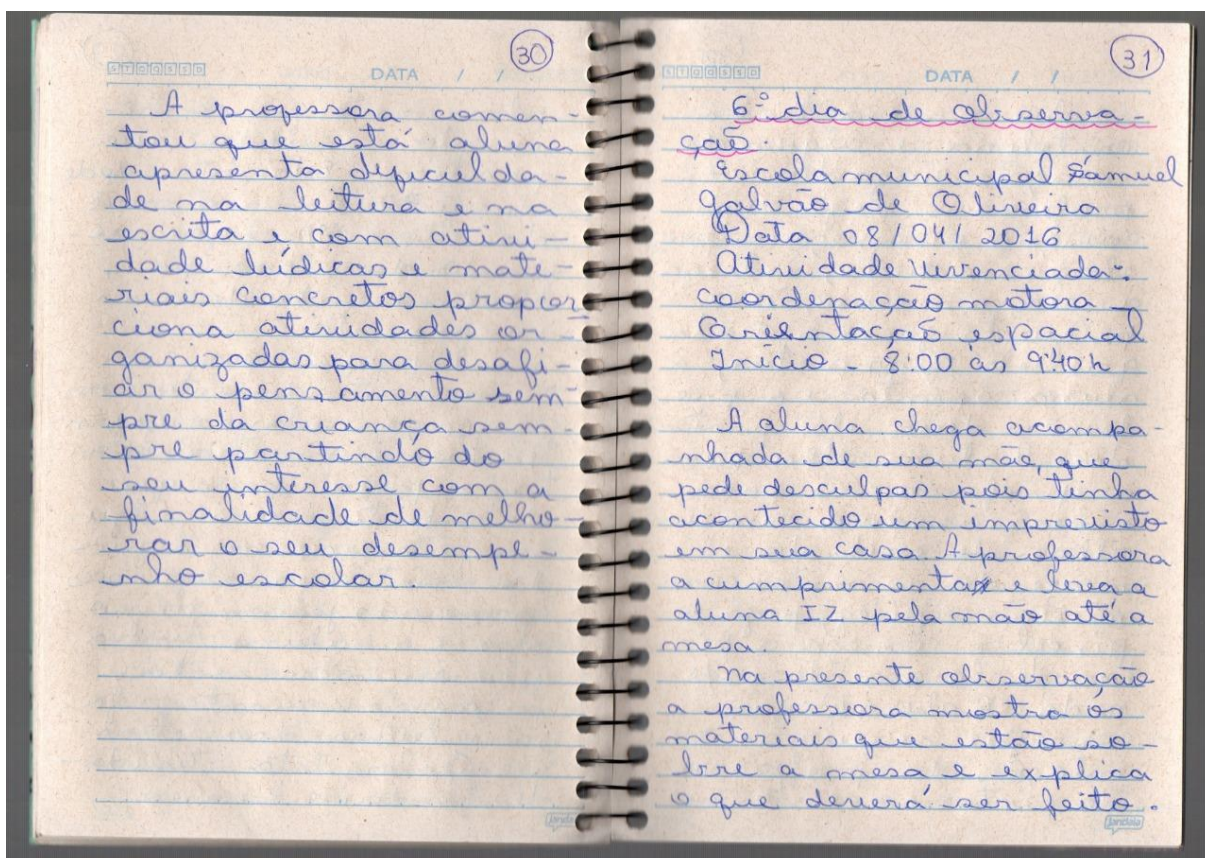 30
STQQSSD
DATA / /
A professora comen-
tou que está aluna
apresenta dificulda-
de na leitura e na
escrita e com ativi-
dade lúdicas e mate-
riais concretos propor
ciona atividades or
ganizadas para desafi-
ar o pensamento sem-
pre da criança sem-
pre partindo do
seu interesse com a
finalidade de melho-
rar o seu desempe-
nho escolar.
31
STQQSSD
DATA / /
6º dia de observa-
ção.
Escola municipal Samuel
galvão de Oliveira
Data 08/04/2016
Atividade vivenciada:
coordenação motora
Orientação espacial
Início - 8:00 às 9:40h
A aluna chega acompa-
nhada de sua mãe, que
pede desculpas pois tinha
acontecido um imprevisto
em sua casa. A professora
a cumprimenta e leva a
aluna IZ pela mão até a
mesa.
na presente observação
a professora mostra os
materiais que estão so-
bre a mesa e explica
o que deverá ser feito.
jandaia